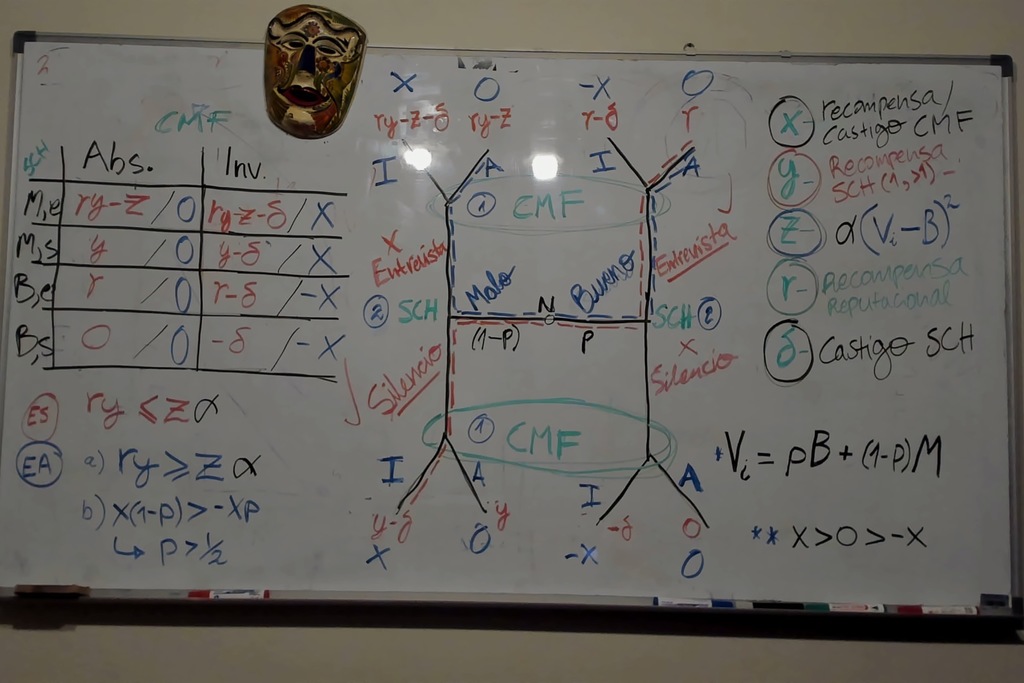 CMF
SCH
Abs.
Inv.
M,e
ry-z/0
ry-z-δ/x
M,s
y/0
y-δ/x
B,e
r/0
r-δ/-x
B,s
0/0
-δ/-x
ES
ry ≤ z α
EA
a) ry ≥ z α
b) x(1-p) > -xp
↳ p > 1/2
x
0
-x
0
ry-z-δ
ry-z
r-δ
r
I
A
I
A
① CMF
x
Entrevista
Entrevista
Malo
N
Bueno
② SCH
SCH ②
(1-p)
p
Silencio
x
Silencio
① CMF
I
A
I
A
y-δ
y
-δ
0
x
0
-x
0
x - recompensa/
Castigo CMF
y - Recompensa
SCH (1,>1) -
z - α(Vi-B)²
r - Recompensa
Reputacional
δ - Castigo SCH
*Vi = pB + (1-p)M
** x > 0 > -x